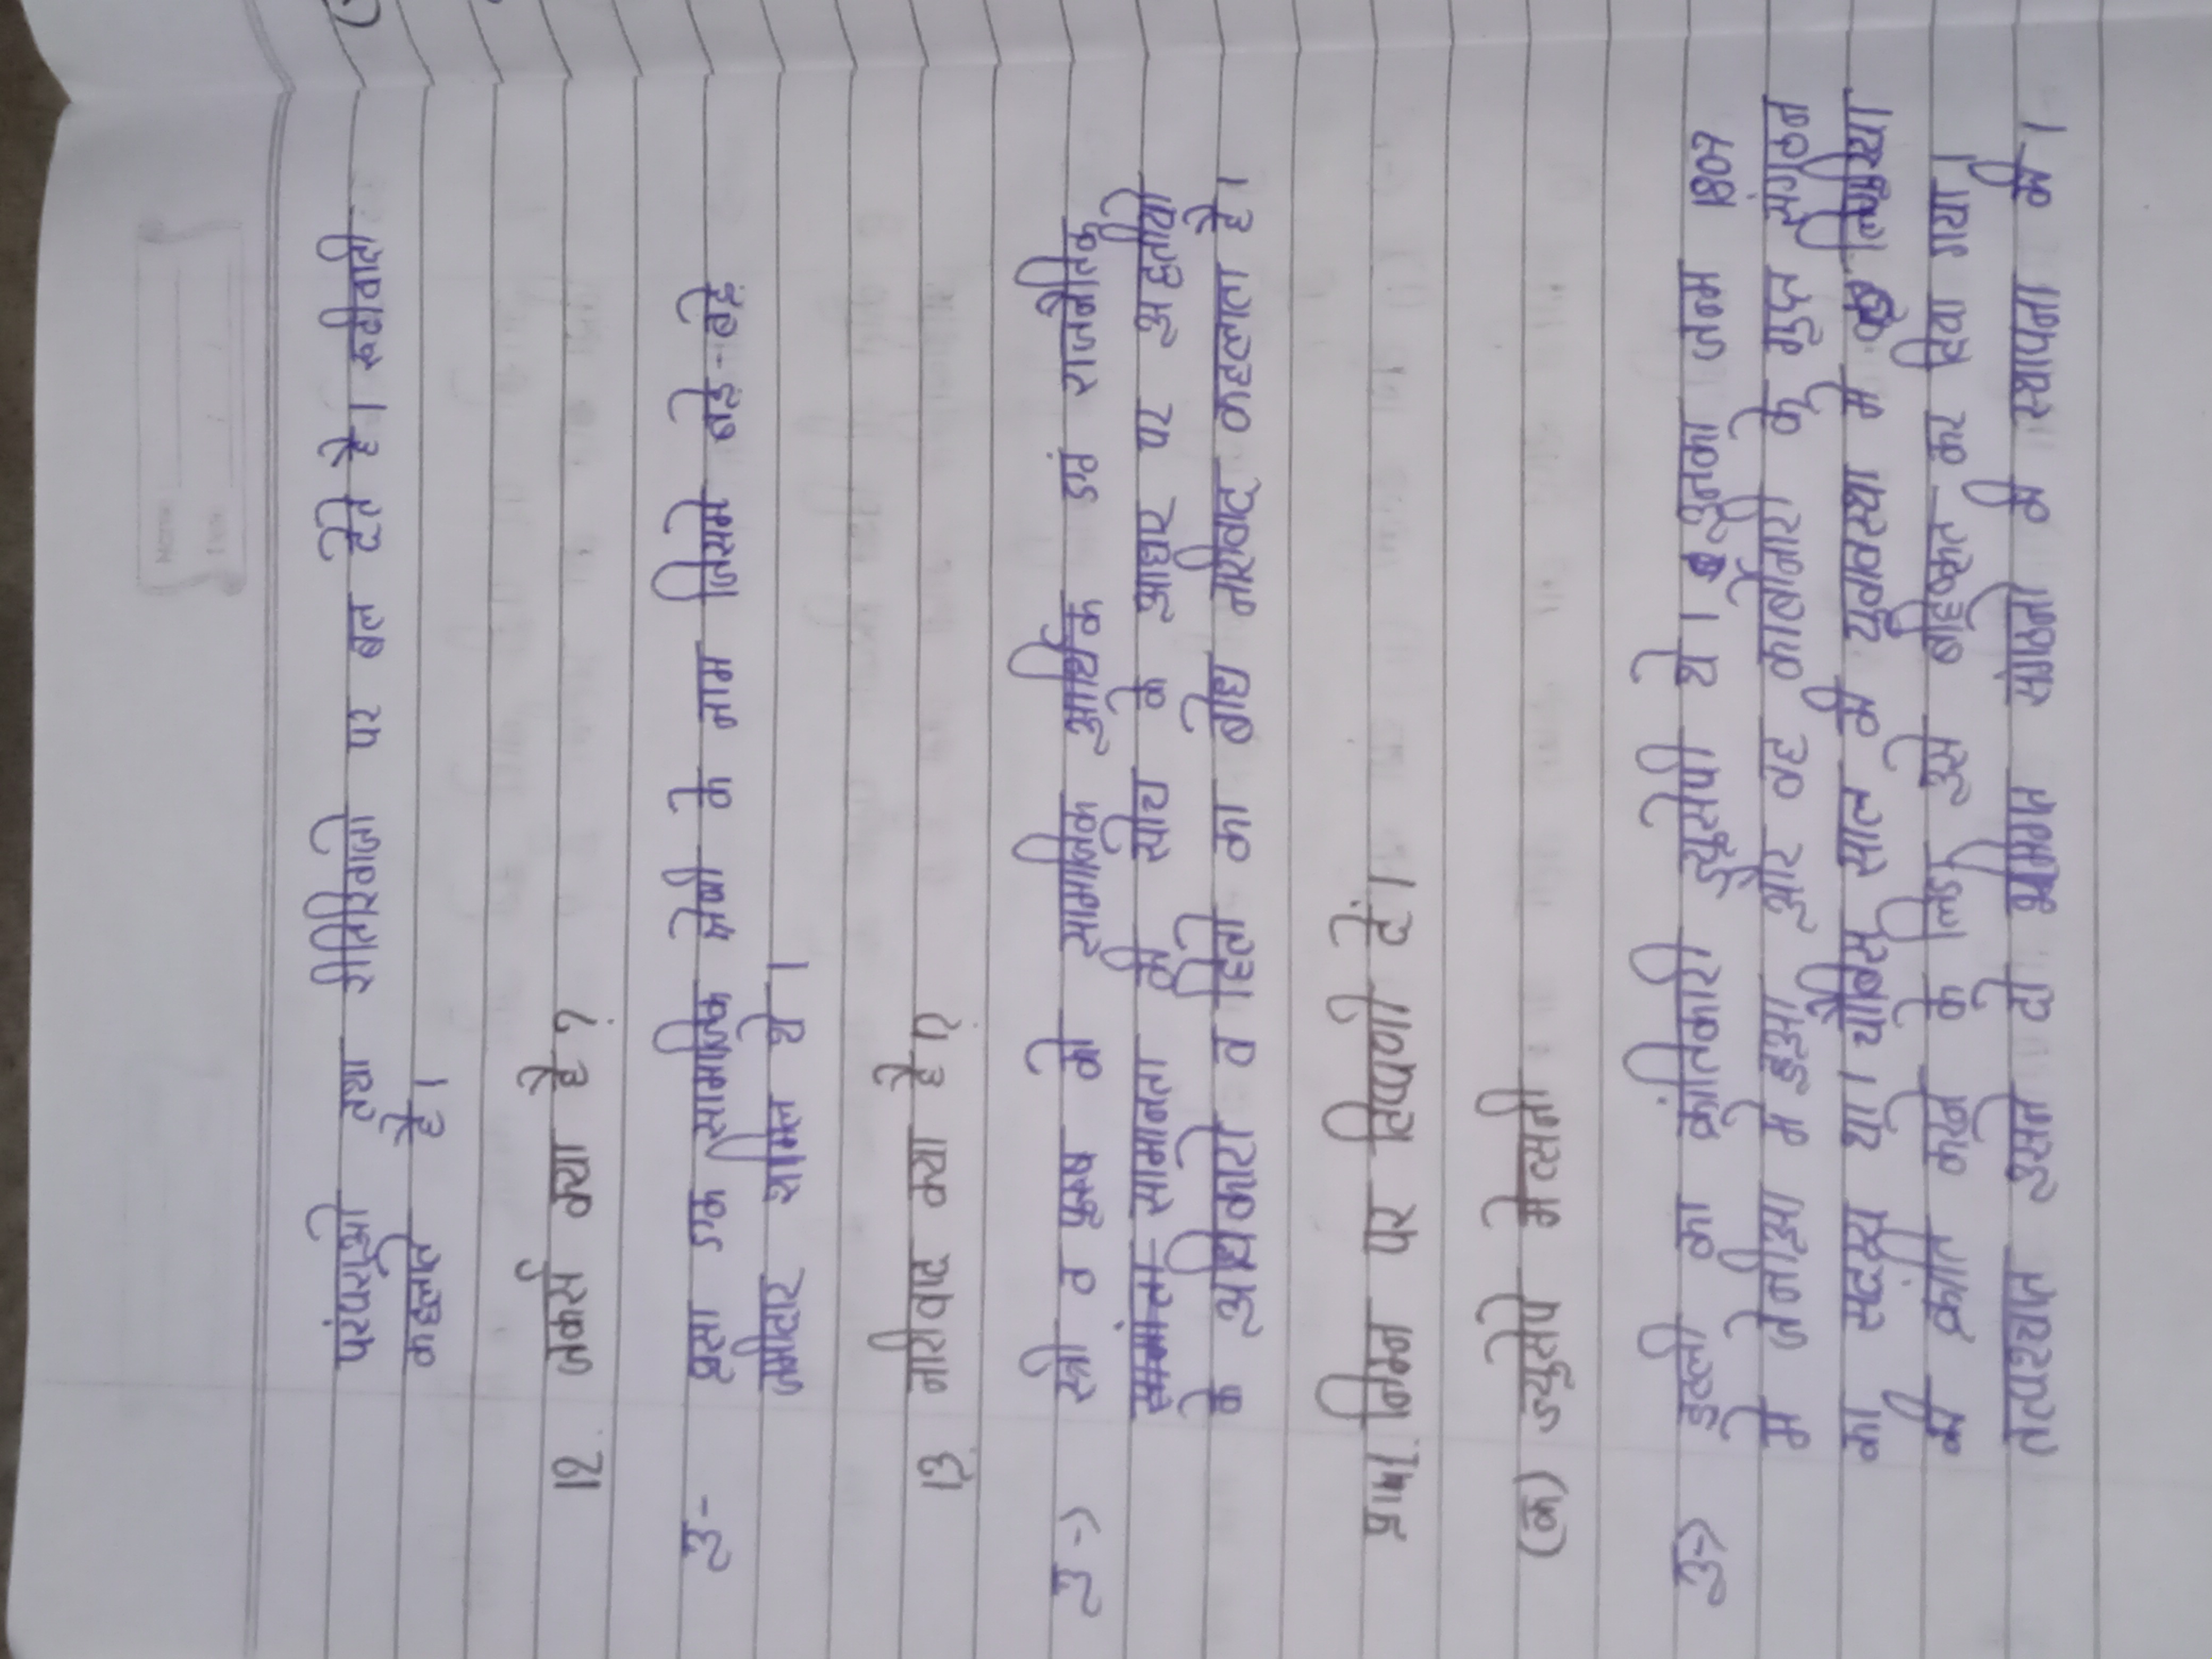 परंपराओ तथा रीतिरिवाजो पर बल देते है। रूढीवादी
कहलाते है।
12. जकर्स क्या है?
उ- प्रसा एक सामाजिक श्रेणी के नाम जिसमे बड़े-बड़े
जमीदार शामिल थे।
13. नारीवाद क्या है।?
उ-> स्त्री व पुरुष को सामाजिक आर्थिक एवं राजनैतिक
सामानता की सोच के आधार पर
के अधिकारो व हितो का बोध नारीवाद कहलाता है।
निम्न पर टिप्पणी दें।
(क) ज्युसेपे मेत्सनी
उ-> इटली का क्रांतिकारी ज्युसेपी थे। उनका जन्म 1807
मे जेनीआ मे हुआ और वह कार्बोनारी के गुप्त संगठन
का सदस्य था। चौबिस साल की युवावस्था मे लिगुरिया
की क्रांति करने के लिए उसे बहिष्कृत कर दिया गया।
तत्पश्चात उसने दो भूमिगत संगठनो की स्थापना की।